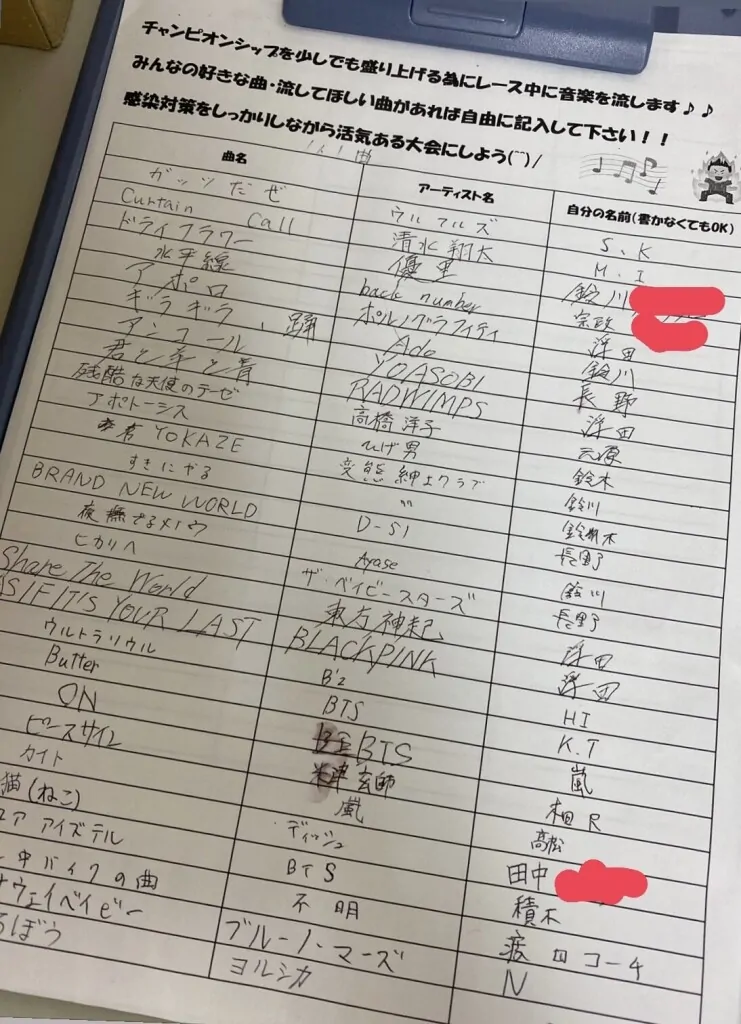 チャンピオンシップを少しでも盛り上げる為にレース中に音楽を流します♪♪
みんなの好きな曲・流してほしい曲があれば自由に記入して下さい！！
感染対策をしっかりしながら活気ある大会にしよう(^^)/
曲名 アーティスト名 自分の名前(書かなくてもOK)
ガッツだぜ ウルフルズ S.K
Curtain Call 清水翔太 M.I
ドライフラワー 優里 鈴川
水平線 back number 宗政
アポロ ポルノグラフィティ 浮田
ギラギラ、踊 Ado 鈴川
アンコール YOASOBI 長野
君と羊と青 RADWIMPS 浮田
残酷な天使のテーゼ 高橋洋子
アポトーシス ひげ男 鈴木
YOKAZE 変態紳士クラブ 鈴川
すきにやる 〃
BRAND NEW WORLD D-51 長野
夜撫でるメノウ Ayase 鈴川
ヒカリへ ザ・ベイビースターズ 長野
Share The World 東方神起 浮田
AS IF IT'S YOUR LAST BLACKPINK 浮田
ウルトラソウル B'z HI
Butter BTS K.T
ON BTS 嵐
ピースサイン 米津玄師 相R
カイト 嵐 高松
猫(ねこ) ディッシュ 田中
ユア アイズテル BTS 積木
中バイクの曲 不明 コーチ
ウェイベイビー ブルーノ・マーズ N
ぼう ヨルシカ